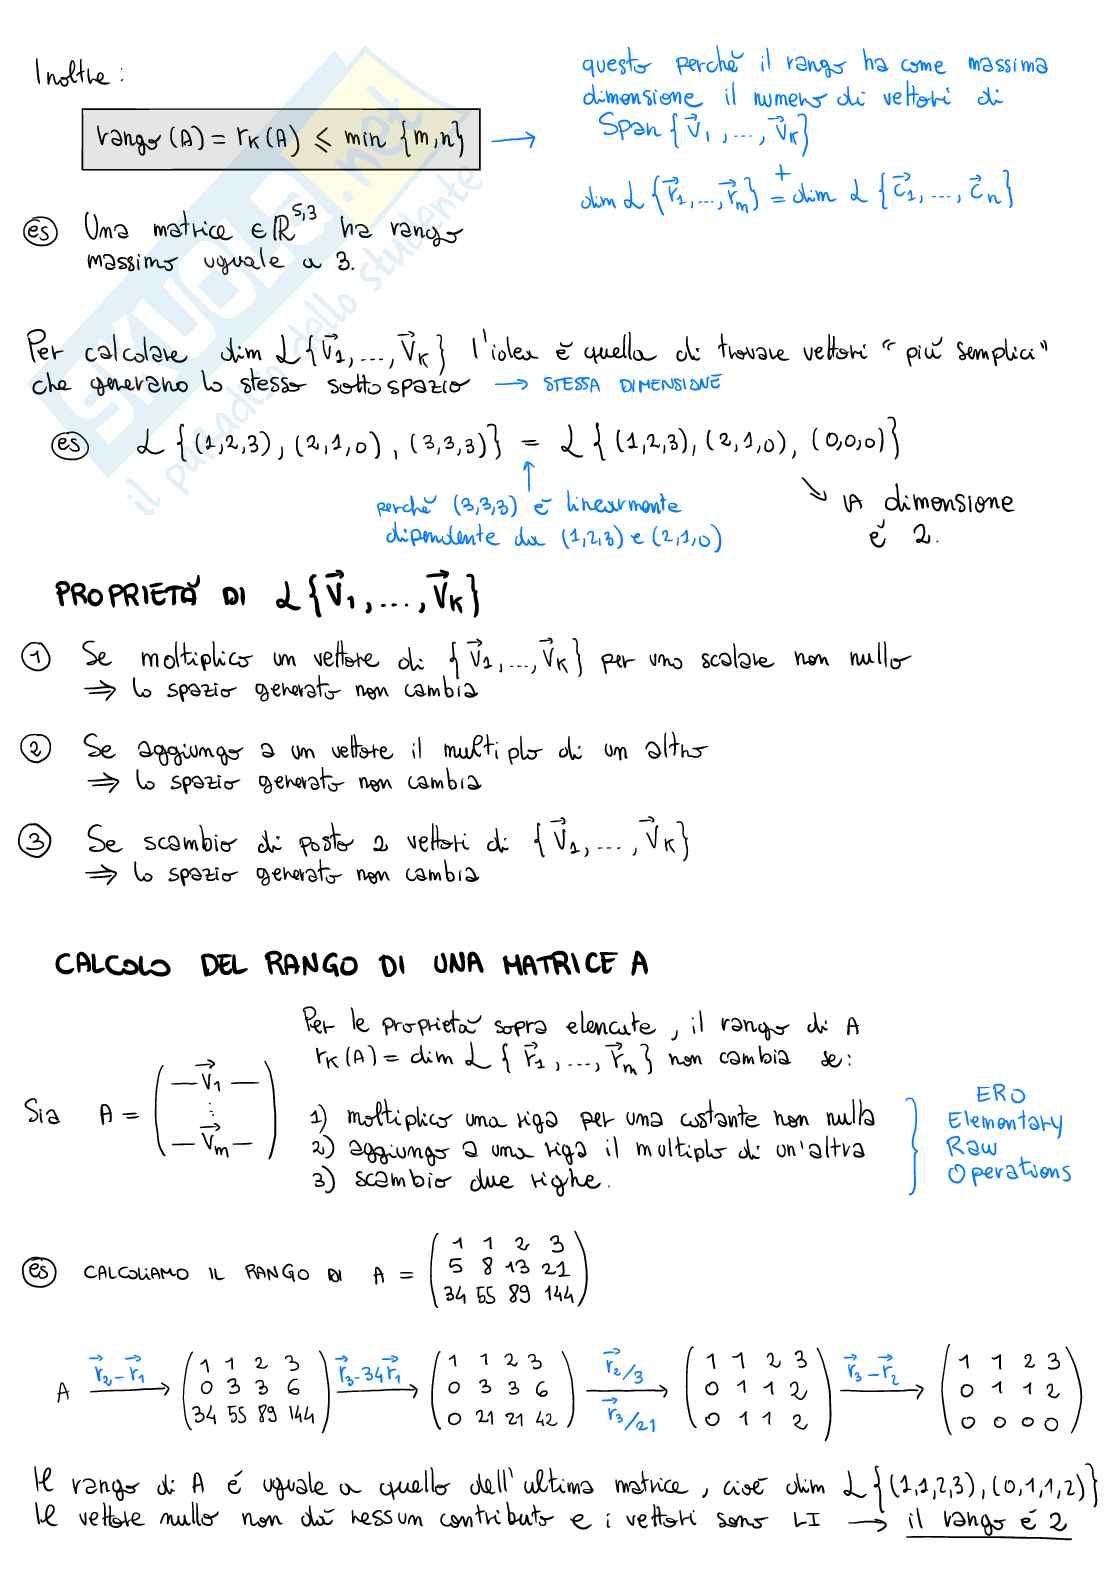 Inoltre :
rango (A) = rK (A) ⩽ min {m,n} →
questo perché il rango ha come massima
dimensione il numero di vettori di
Span { v⃗1 , ..., v⃗K }
dim L { r⃗1, ..., r⃗m } =⁺ dim L { c⃗1, ..., c⃗n }
es Una matrice ∈ ℝ^5,3 ha rango
massimo uguale a 3.
Per calcolare dim L { v⃗1, ..., v⃗K } l'idea è quella di trovare vettori " più semplici"
che generano lo stesso sottospazio → STESSA DIMENSIONE
es L { (1,2,3), (2,1,0), (3,3,3) } = L { (1,2,3), (2,1,0), (0,0,0) }
↑
perché (3,3,3) è linearmente
dipendente da (1,2,3) e (2,1,0)
↘ la dimensione
è 2.
PROPRIETÁ DI L { v⃗1, ..., v⃗K }
1 Se moltiplico un vettore di { v⃗1, ..., v⃗K } per uno scalare non nullo
⇒ lo spazio generato non cambia
2 Se aggiungo a un vettore il multiplo di un altro
⇒ lo spazio generato non cambia
3 Se scambio di posto 2 vettori di { v⃗1, ..., v⃗K }
⇒ lo spazio generato non cambia
CALCOLO DEL RANGO DI UNA MATRICE A
Per le proprietà sopra elencate, il rango di A
rK (A) = dim L { r⃗1, ..., r⃗m } non cambia se:
Sia A = ( — v⃗1 — ⋮ — v⃗m — )
1) moltiplico una riga per una costante non nulla
2) aggiungo a una riga il multiplo di un'altra
3) scambio due righe.
ERO
Elementary
Raw
Operations
es CALCOLIAMO IL RANGO DI A =
1 1 2 3
5 8 13 21
34 55 89 144
A r⃗2 - r⃗1 →
1 1 2 3
0 3 3 6
34 55 89 144
r⃗3 - 34r⃗1 →
1 1 2 3
0 3 3 6
0 21 21 42
r⃗2/3 → r⃗3/21
1 1 2 3
0 1 1 2
0 1 1 2
r⃗3 - r⃗2 →
1 1 2 3
0 1 1 2
0 0 0 0
Il rango di A é uguale a quello dell'ultima matrice, cioè dim L { (1,1,2,3), (0,1,1,2) }
Il vettore nullo non dà nessun contributo e i vettori sono LI → il rango é 2
SKUOLA.net
il paradiso dello studente